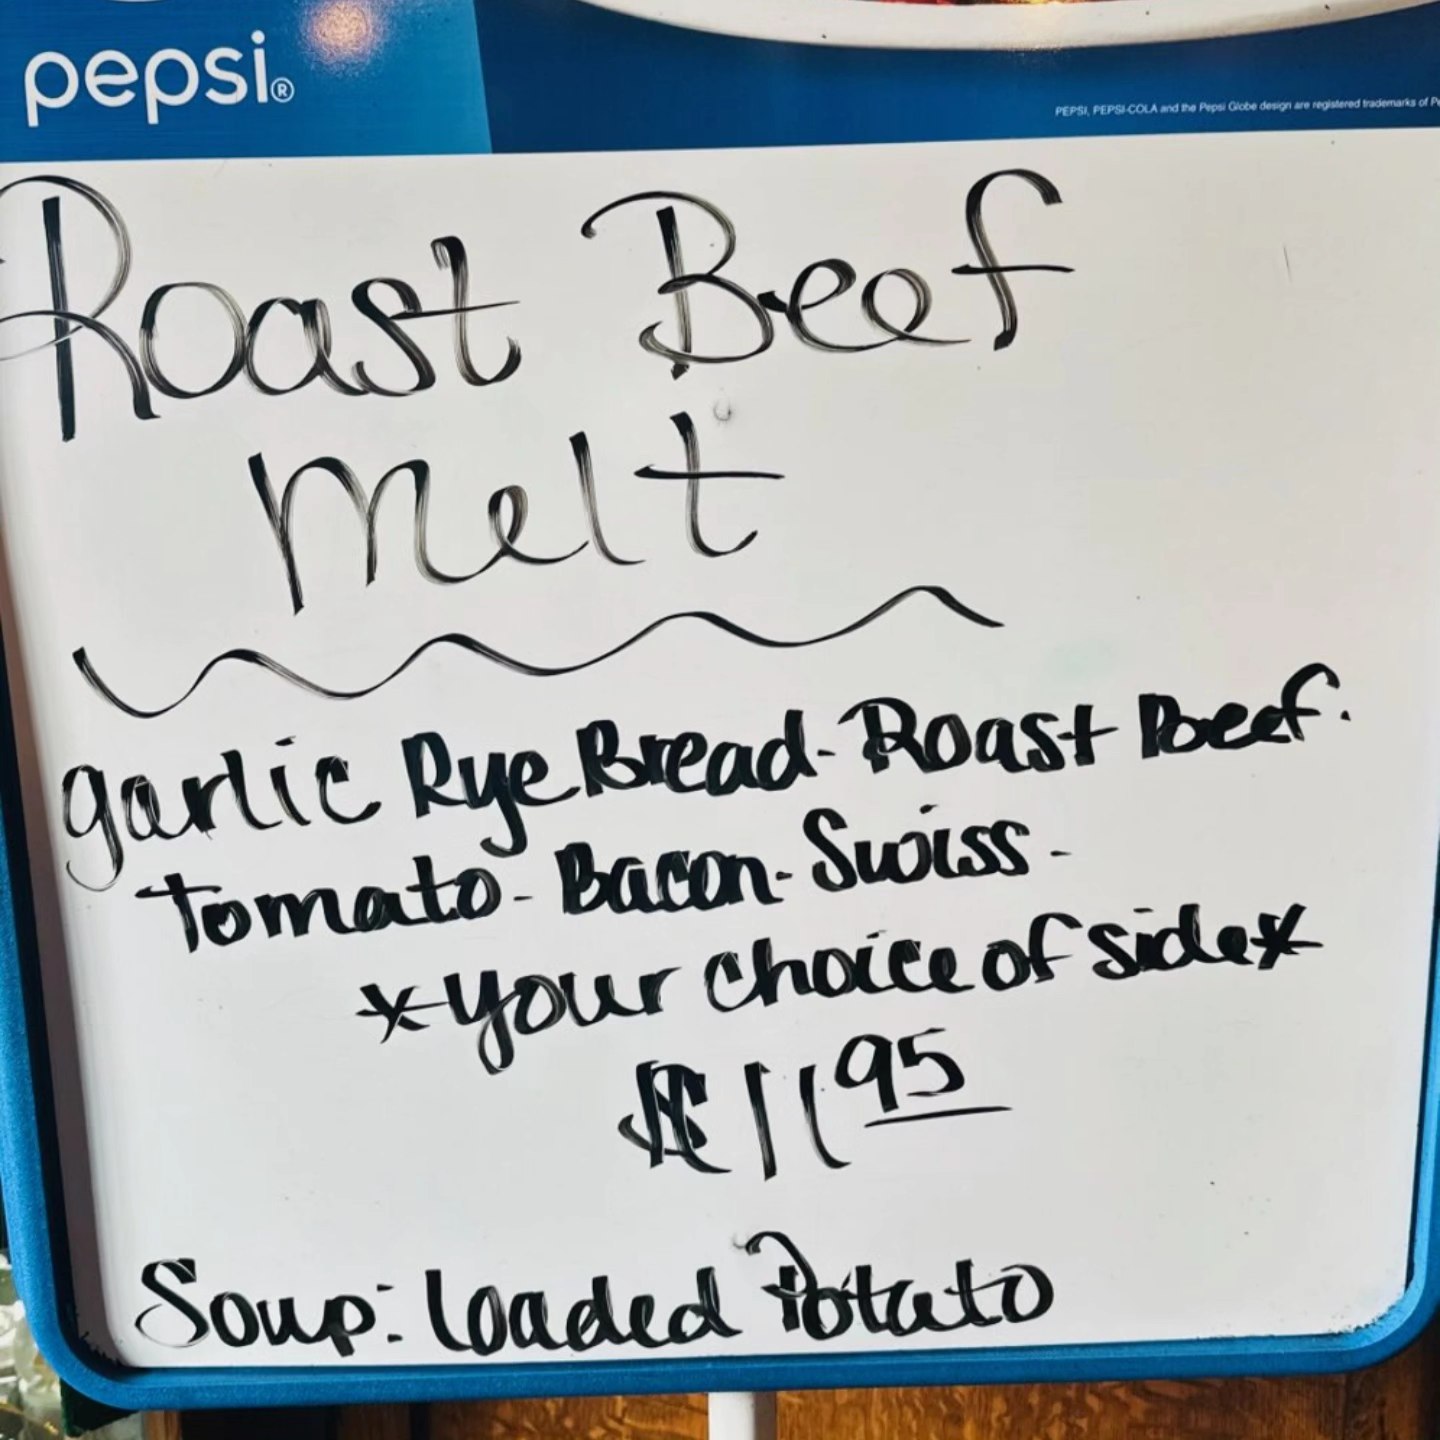 pepsi®
PEPSI, PEPSI-COLA and the Pepsi Globe design are registered trademarks of
Roast Beef
Melt
garlic Rye Bread - Roast Beef.
Tomato - Bacon - Swiss -
*your choice of side*
$11 95
Soup: Loaded Potato